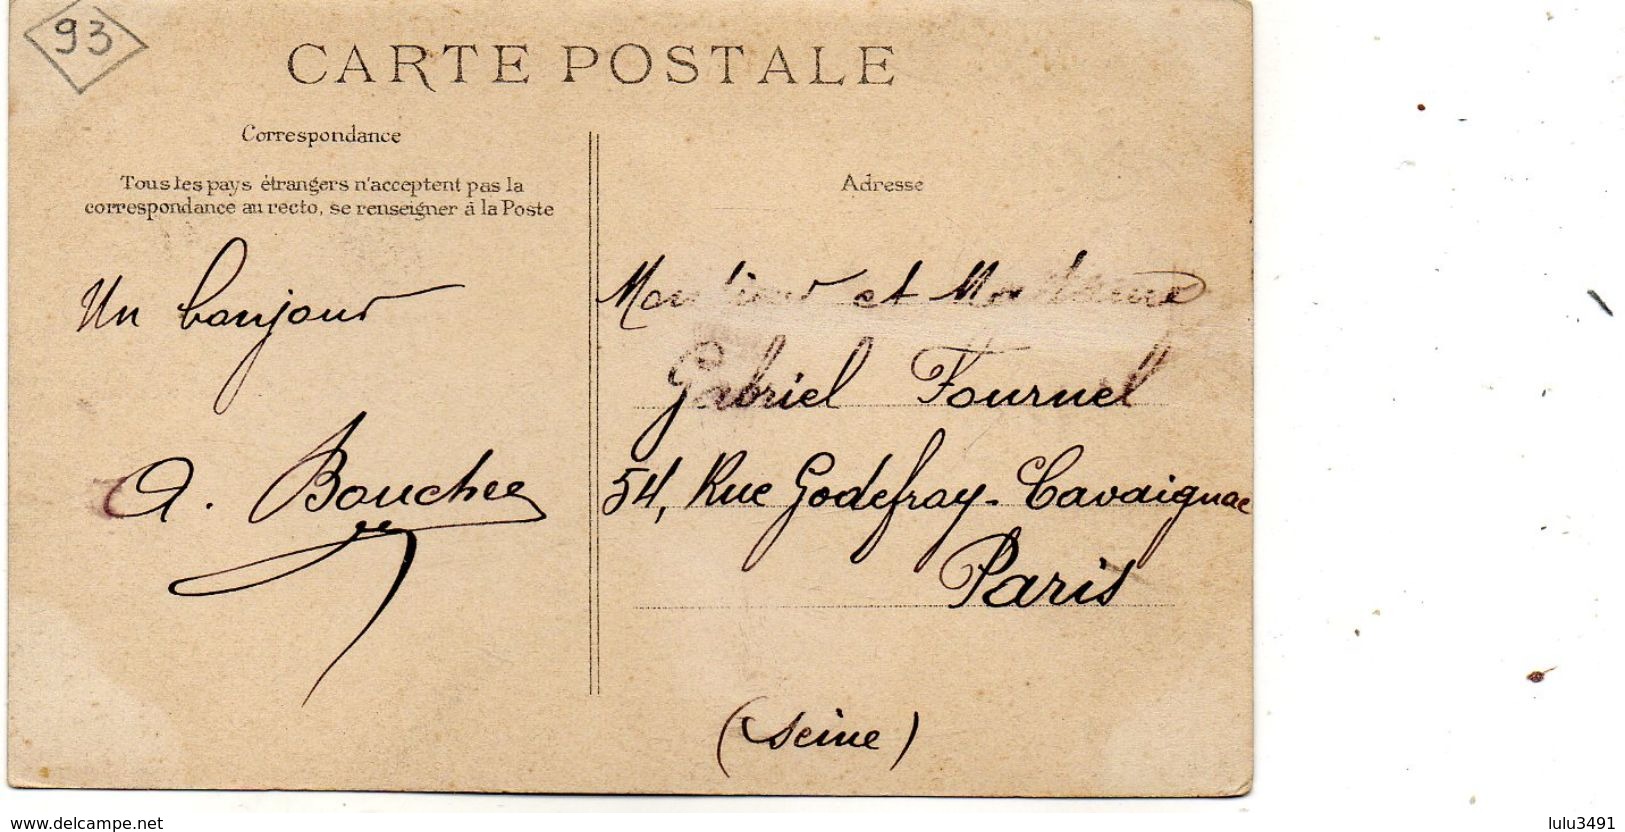 93
CARTE POSTALE
Correspondance
Tous les pays étrangers n'acceptent pas la
correspondance au recto, se renseigner à la Poste
Un bonjour
A. Bouchez
Adresse
Monsieur et Madame
Gabriel Fournel
54, Rue Godefroy-Cavaignac
Paris
(Seine)
www.delcampe.net
lulu3491